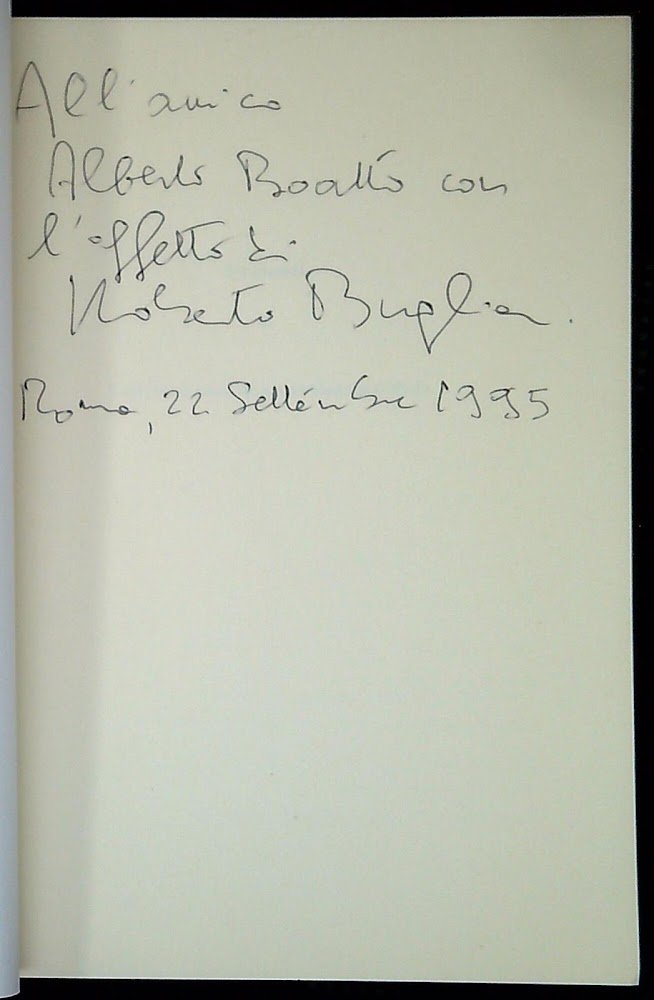 All'amico
Alberto Boatto con
l'affetto di
Roberto Bugliani.
Roma, 22 Settembre 1995